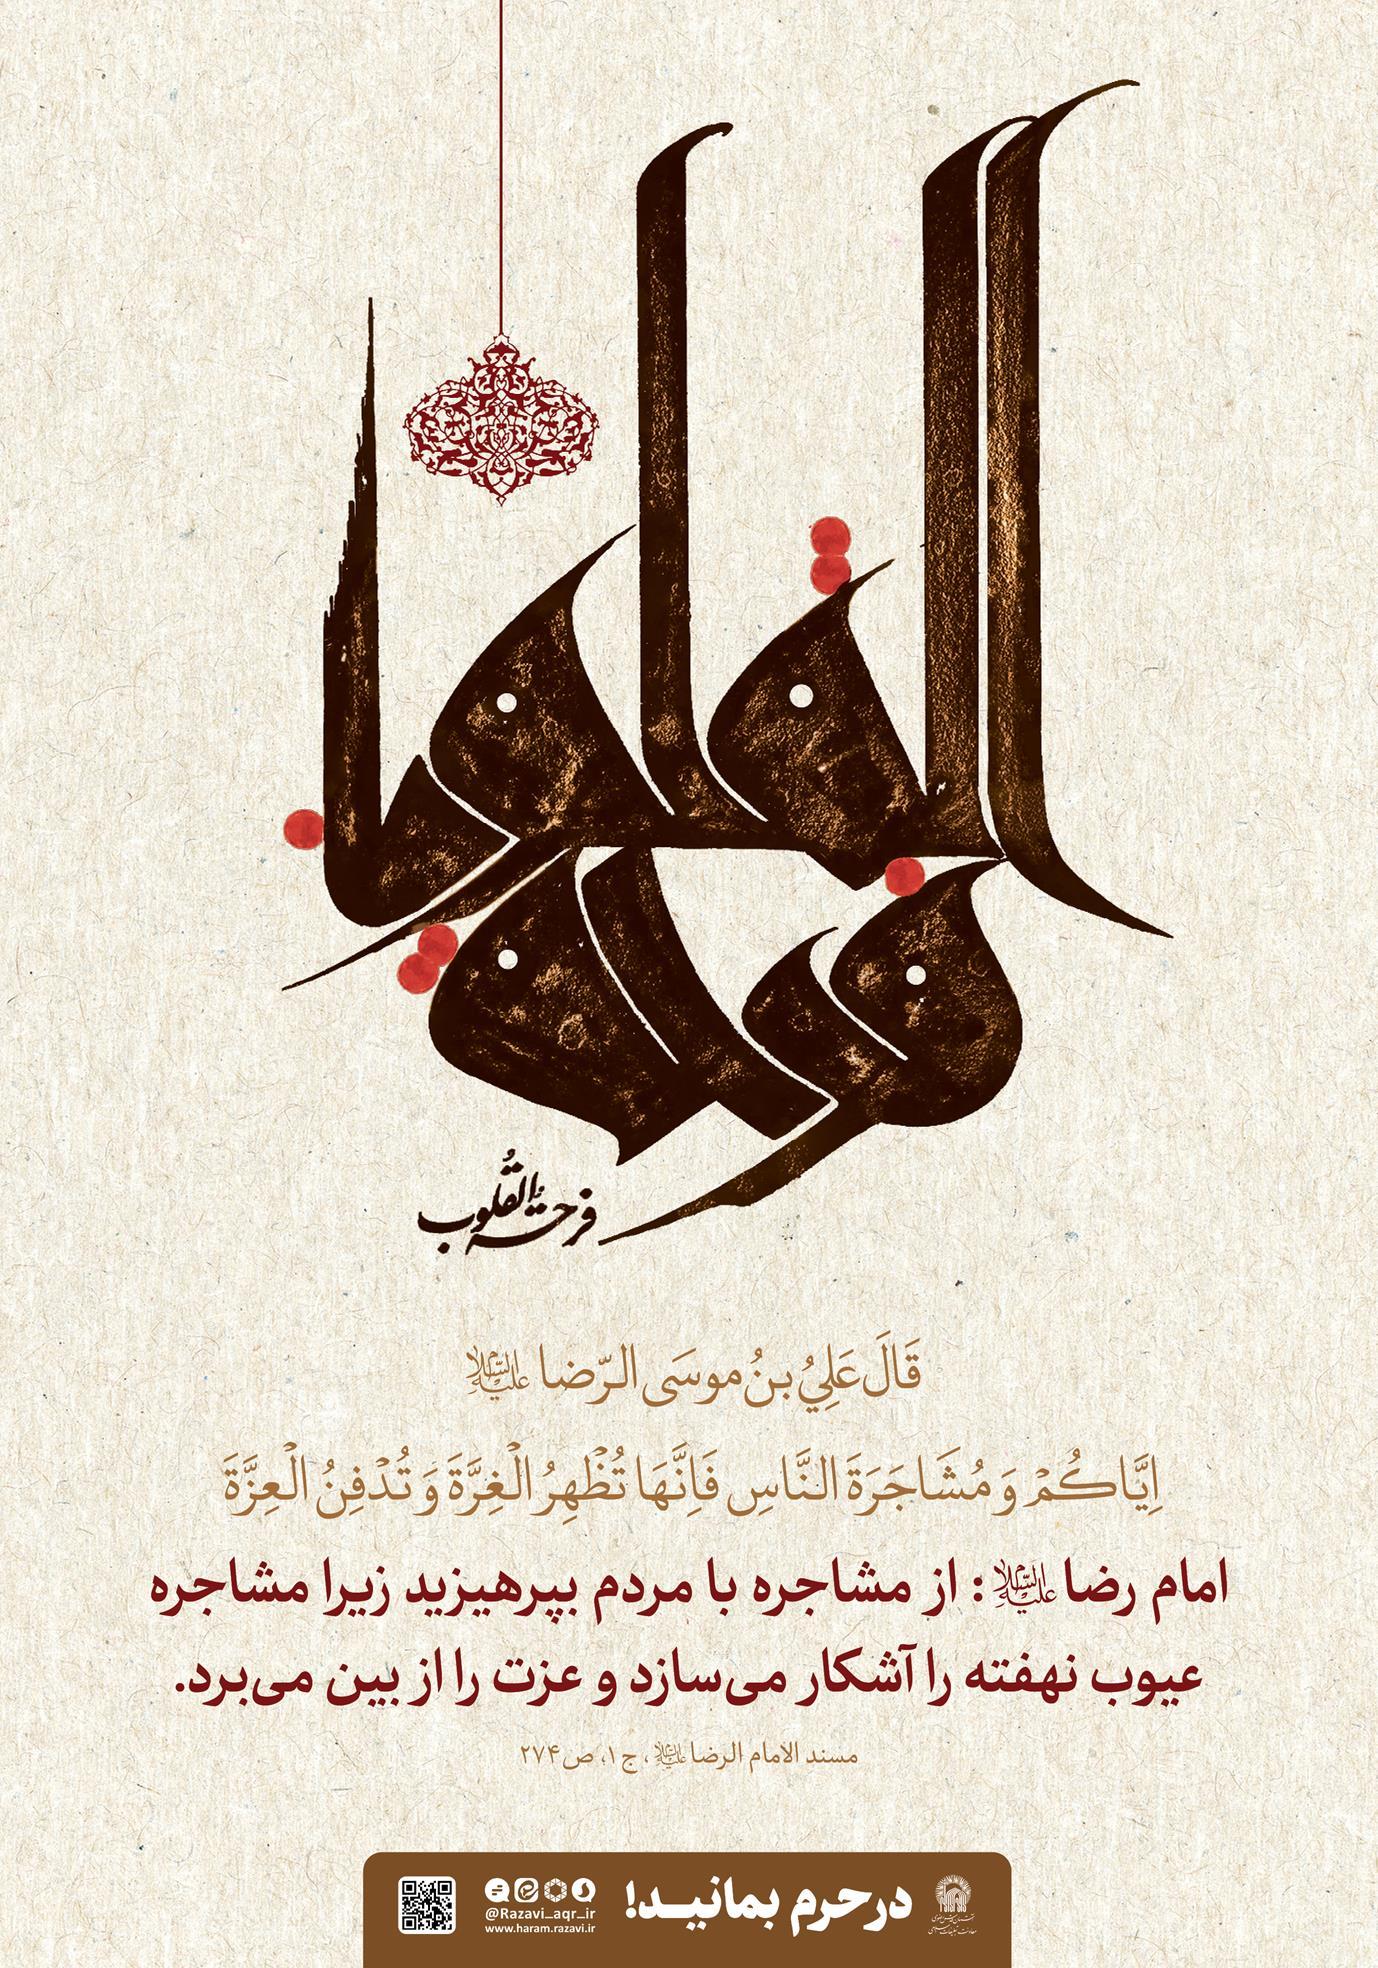 فرحة القلوب
فرحةُ القُلوب
قَالَ عَلِيُ بنُ موسَى الرّضا علیه‌السلام
اِیَّاكُمْ وَ مُشَاجَرَةَ النَّاسِ فَاِنَّهَا تُظْهِرُ الْغِرَّةَ وَ تُدْفِنُ الْعِزَّةَ
امام رضا علیه‌السلام : از مشاجره با مردم بپرهیزید زیرا مشاجره
عیوب نهفته را آشکار می‌سازد و عزت را از بین می‌برد.
مسند الامام الرضا علیه‌السلام ، ج ۱، ص ۲۷۴
درحرم بمانید!
@Razavi_aqr_ir
www.haram.razavi.ir